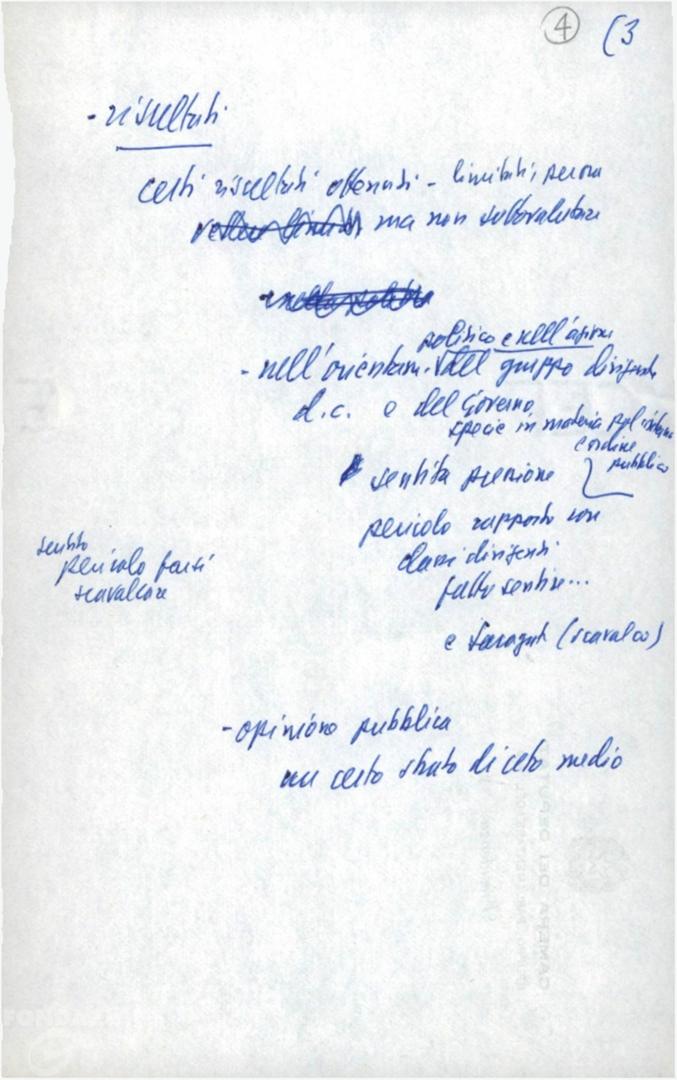 4 (3
- risultati
certi risultati ottenuti - limitati, ancora
ma non sottovalutare
politico e nell'azione
- nell'orientam. del gruppo dirigente
d.c. e del Governo
specie in materia pol. interna
e ordine
pubblico
sentita pressione
pericolo rapporto con
classi dirigenti
fatto sentire...
sentito
pericolo farsi
scavalcare
e Saragat (scavalco)
- opinione pubblica
un certo strato di ceto medio
CAMERA DEI DEPUTATI
FONDAZIONE